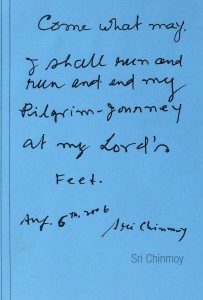 Come what may.
I shall run and
run and end my
Pilgrim-Journey
at my Lord's
Feet.
Aug. 6th, 2006
Sri Chinmoy
Sri Chinmoy